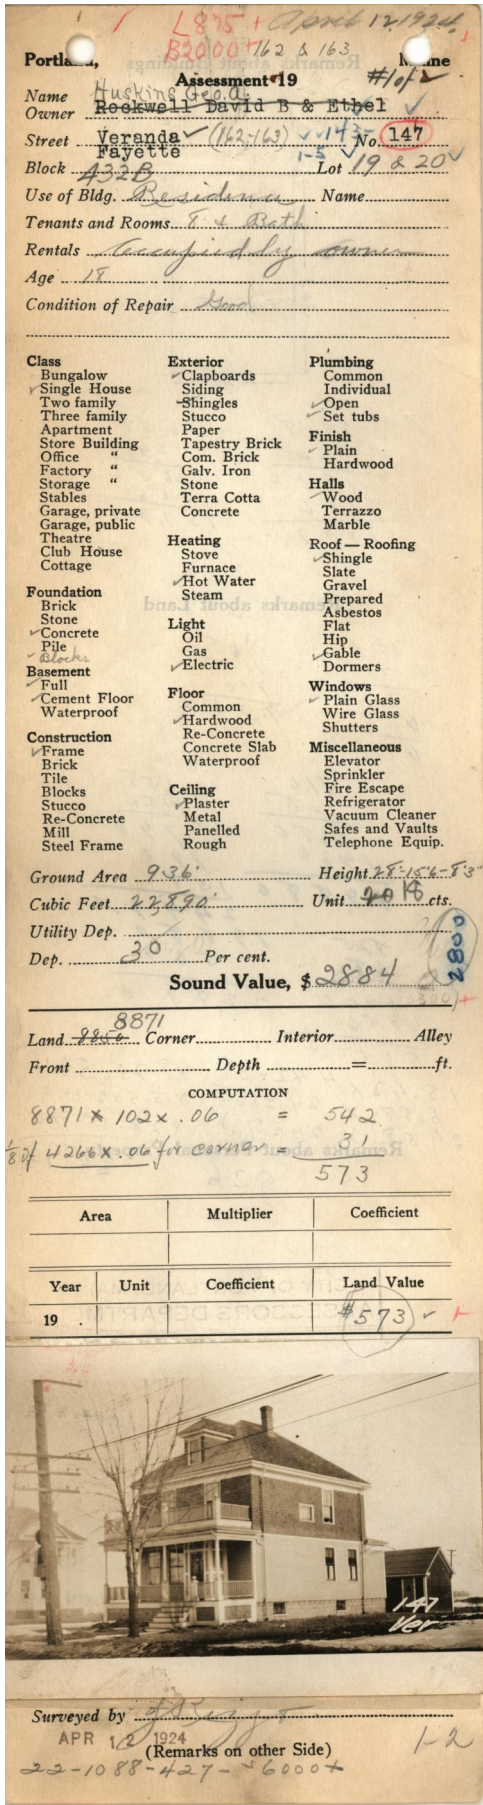 L875 + April 12, 1924
B2000 + 162 & 163
Portland, Maine
Assessment 19 #1 of 2
Name Huskins Geo. A.
Owner Rockwell David B & Ethel
Street Veranda (162, 163) 143- No. 147
Fayette 1-5
Block 432B Lot 19 & 20
Use of Bldg. Residence Name
Tenants and Rooms 8 & Bath
Rentals Occupied by owner
Age 18
Condition of Repair Good
Class
Bungalow
Single House
Two family
Three family
Apartment
Store Building
Office "
Factory "
Storage "
Stables
Garage, private
Garage, public
Theatre
Club House
Cottage
Foundation
Brick
Stone
Concrete
Pile
Blocks
Basement
Full
Cement Floor
Waterproof
Construction
Frame
Brick
Tile
Blocks
Stucco
Re-Concrete
Mill
Steel Frame
Exterior
Clapboards
Siding
Shingles
Stucco
Paper
Tapestry Brick
Com. Brick
Galv. Iron
Stone
Terra Cotta
Concrete
Heating
Stove
Furnace
Hot Water
Steam
Light
Oil
Gas
Electric
Floor
Common
Hardwood
Re-Concrete
Concrete Slab
Waterproof
Ceiling
Plaster
Metal
Panelled
Rough
Plumbing
Common
Individual
Open
Set tubs
Finish
Plain
Hardwood
Halls
Wood
Terrazzo
Marble
Roof — Roofing
Shingle
Slate
Gravel
Prepared
Asbestos
Flat
Hip
Gable
Dormers
Windows
Plain Glass
Wire Glass
Shutters
Miscellaneous
Elevator
Sprinkler
Fire Escape
Refrigerator
Vacuum Cleaner
Safes and Vaults
Telephone Equip.
Ground Area 936' Height 28'-15'6-8'3"
Cubic Feet 22890' Unit 20 18 cts.
Utility Dep.
Dep. 30 Per cent. 2800
Sound Value, $ 2884
8871
Land 8850 Corner Interior Alley
Front Depth = ft.
COMPUTATION
8871 x 102 x .06 = 542
1/8 of 4266 x .06 for corner = 31
573
Area Multiplier Coefficient
Year Unit Coefficient Land Value
19 . $573
147
Ver
Surveyed by
APR 12 1924
(Remarks on other Side) 1-2
22-1088-427-$6000+